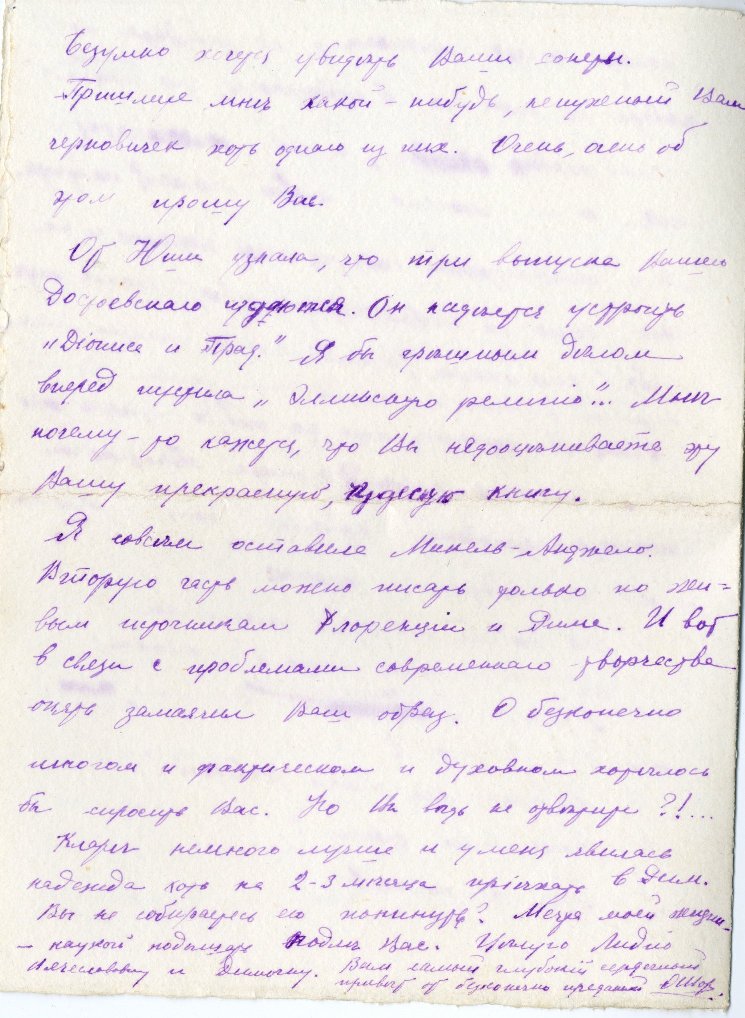 Безумно хочется увидать Ваши сонеты.
Пришлите мнѣ какой-нибудь, ненужный Вам
черновичек хоть одного из них. Очень, очень об
этом прошу Вас.
Об Юши узнала, что три выпуска Вашего
Достоевскаго издаются. Он надѣется устроить
„Діонис и ПраД.” Я бы грѣшным дѣлом
вперед издала „Эллинскую религію”... Мнѣ
почему-то кажется, что Вы недооцѣниваете эту
Вашу прекрасную, чудесную книгу.
Я совсѣм оставила Микель-Анджело.
Вторую часть можно писать только по жи=
вым источникам Флоренціи и Рима. И вот
в связи с проблемами современнаго творчества
опять замаячил Ваш образ. О безконечно
многом и фактическом и духовном хотѣлось
бы спросить Вас. Но Вы вѣдь не отвѣтите?!...
немного лучше и у меня явилась
надежда хоть на 2-3 мѣсяца пріѣхать в Рим.
Вы не собираетесь его покинуть? Мечта моей жизни-
- наукой подышать подлѣ Вас. Цѣлую Лидію
Вячеславовну и Димочку. Вам самый глубокій сердечный
привѣт от безконечно преданной ОШор.